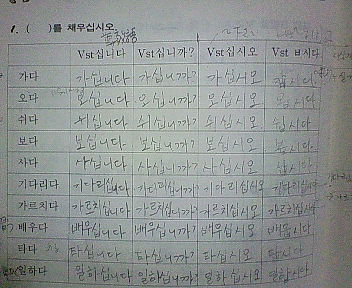 1. (     )를 채우십시오.
Vst십니다 Vst십니까? Vst십시오 Vst 비시다
가다 가십니다 가십니까? 가십시오 갑시다
오다 오십니다 오십니까? 오십시오 옵시다
쉬다 쉬십니다 쉬십니까? 쉬십시오 쉽시다
보다 보십니다 보십니까? 보십시오 봅시다
사다 사십니다 사십니까? 사십시오 삽시다
기다리다 기다리십니다 기다리십니까? 기다리십시오 기다립시다
가르치다 가르치십니다 가르치십니까? 가르치십시오 가르칩시다
배우다 배우십니다 배우십니까? 배우십시오 배웁시다
타다 타십니다 타십니까? 타십시오 탑시다
일하다 일하십니다 일하십니까? 일하십시오 일합시다